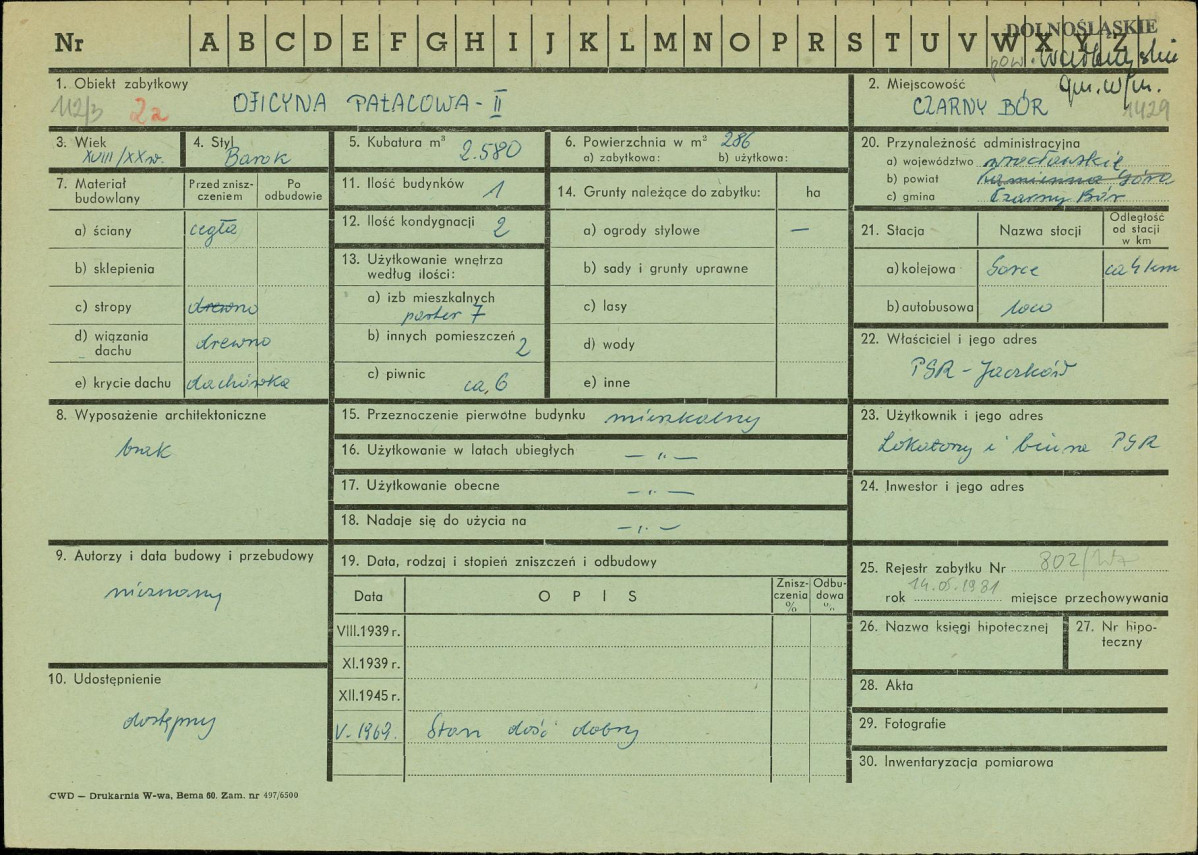 Nr A B C D E F G H I J K L M N O P R S T U V W X Y Z
DOLNOŚLĄSKIE
pow. wałbrzyskie
gm. w/m.
1. Obiekt zabytkowy
112/3 2a OFICYNA PAŁACOWA - II
2. Miejscowość
CZARNY BÓR 1429
3. Wiek
XVIII/XX w.
4. Styl
Barok
5. Kubatura m³ 2.580
6. Powierzchnia w m² 286
a) zabytkowa: b) użytkowa:
7. Materiał budowlany
Przed zniszczeniem
Po odbudowie
a) ściany cegła
b) sklepienia
c) stropy drewno
d) wiązania dachu drewno
e) krycie dachu dachówka
8. Wyposażenie architektoniczne
brak
9. Autorzy i data budowy i przebudowy
nieznany
10. Udostępnienie
dostępny
11. Ilość budynków 1
12. Ilość kondygnacji 2
13. Użytkowanie wnętrza
według ilości:
a) izb mieszkalnych
parter 7
b) innych pomieszczeń 2
c) piwnic ca 6
14. Grunty należące do zabytku: ha
a) ogrody stylowe —
b) sady i grunty uprawne
c) lasy
d) wody
e) inne
15. Przeznaczenie pierwotne budynku mieszkalny
16. Użytkowanie w latach ubiegłych — " —
17. Użytkowanie obecne — " —
18. Nadaje się do użycia na — " —
19. Data, rodzaj i stopień zniszczeń i odbudowy
Data OPIS Zniszczenia % Odbudowa "
VIII.1939 r.
XI.1939 r.
XII.1945 r.
V. 1969. Stan dość dobry
20. Przynależność administracyjna
a) województwo wrocławskie
b) powiat Kamienna Góra
c) gmina Czarny Bór
21. Stacja Nazwa stacji Odległość od stacji w km
a) kolejowa Gorce ca 4 km
b) autobusowa loco
22. Właściciel i jego adres
PGR - Jaczków
23. Użytkownik i jego adres
Lokatorzy i biura PGR
24. Inwestor i jego adres
25. Rejestr zabytku Nr 802/Wł
rok 14.05.1981 miejsce przechowywania
26. Nazwa księgi hipotecznej
27. Nr hipoteczny
28. Akta
29. Fotografie
30. Inwentaryzacja pomiarowa
CWD — Drukarnia W-wa, Bema 60. Zam. nr 497/6500